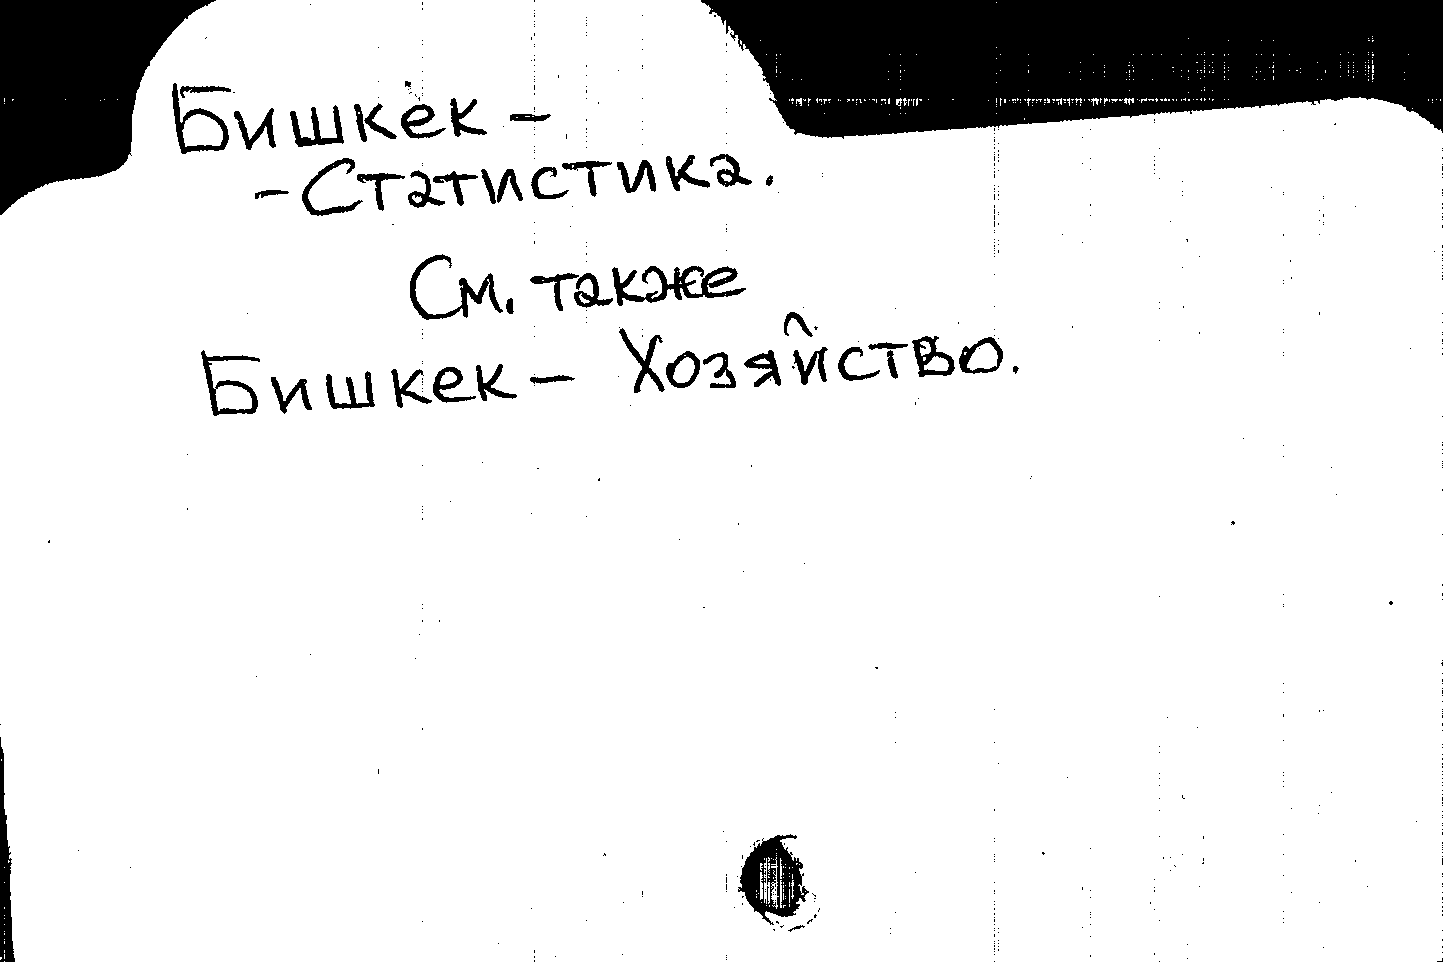 Бишкек –
– Статистика.
См. также
Бишкек – Хозяйство.